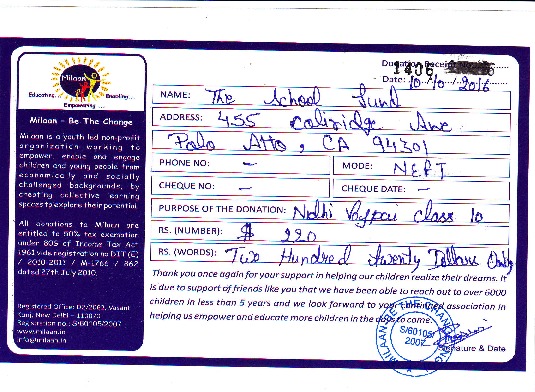 Milaan
Educating... Enabling...
Empowering......
Milaan - Be The Change
Milaan is a youth led non-profit
organization working to
empower, enable and engage
children and young people from
economically and socially
challenged backgrounds, by
creating collective learning
spaces to explore their potential.
All donations to Milaan are
entitled to 50% tax exemption
under 80G of Income Tax Act
1961 vide registration no DIT (E)
/ 2010-2011 / M-1766 / 862
dated 27th July 2010.
Registered Office: D2/2063, Vasant
Kunj, New Delhi - 110070
Registration no.: S/60105/2007
www.milaan.in
info@milaan.in
Donation Receipt
1406
Date: 10/10/2016
NAME: The School Fund
ADDRESS: 455 Coliridge Ave
Palo Alto, CA 94301
PHONE NO: — MODE: NEFT
CHEQUE NO: — CHEQUE DATE: —
PURPOSE OF THE DONATION: Nidhi class 10
RS. (NUMBER): $ 220
RS. (WORDS): Two Hundred twenty Dollars Only
Thank you once again for your support in helping our children realize their dreams. It
is due to support of friends like you that we have been able to reach out to over 6000
children in less than 5 years and we look forward to your continued association in
helping us empower and educate more children in the days to come.
MILAAN BE THE CHANGE
S/60105/
2007
Signature & Date